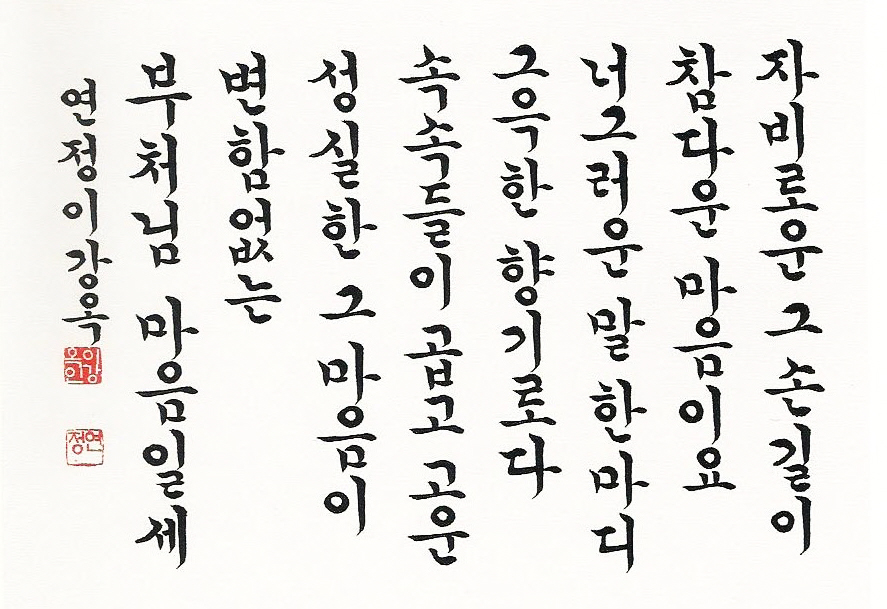 자비로운 그 손길이
참다운 마음이요
너그러운 말 한마디
그윽한 향기로다
속속들이 곱고 고운
성실한 그 마음이
변함없는
부처님 마음일세
연정 이강옥
이강옥
연정